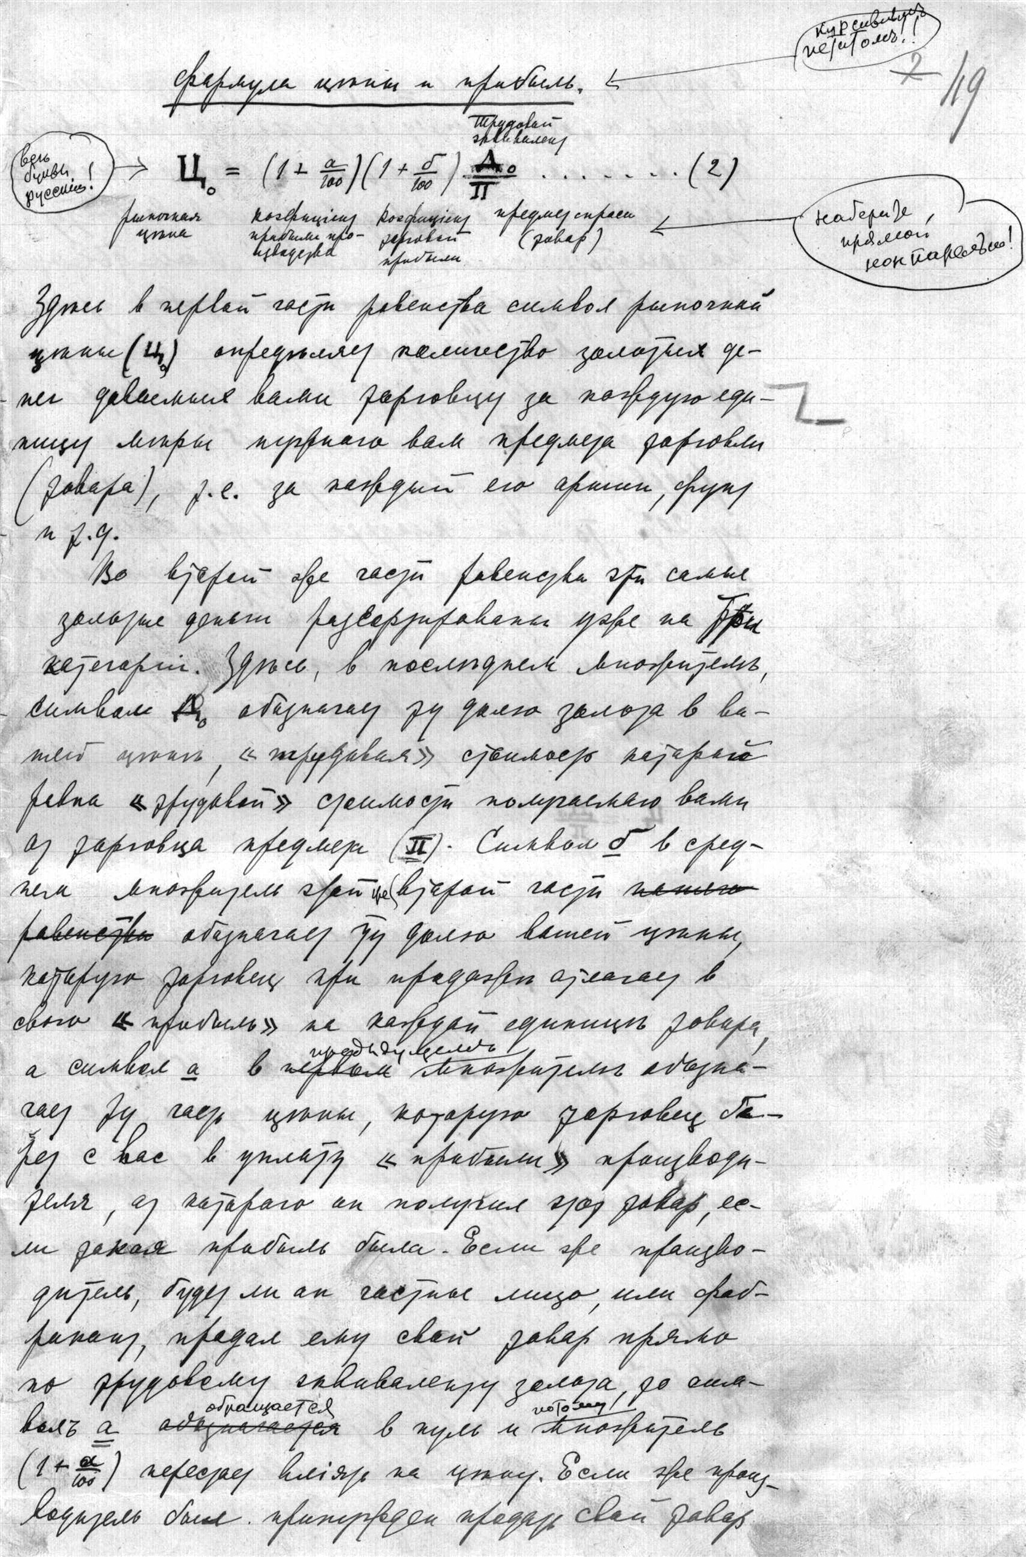 курсивным
петитом!!
2 /19
Формула цѣны и прибыль.
Трудовой
эквивалент
весь
буквы
русскія!
Ц₀ = (1 + а/100)(1 + б/100) Д₀/П . . . . . . . (2)
рыночная
цѣна
коэфиціент
прибыли про-
изводства
коэфиціент
торговой
прибыли
предмет спроса
(товар)
наберите,
прямой
нонпарелью!
Здѣсь в первой части равенства символ рыночной
цѣны (Ц₀) опредѣляет количество золотых де-
нег даваемых вами торговцу за каждую еди-
ницу мѣры нужного вам предмета торговли
(товара), т.е. за каждый его аршин, фунт
и т.д.
Во второй же части равенства эти самые
золотые деньги рассортированы уже на три
категоріи. Здѣсь, в послѣднем множителѣ,
символ Д₀ обозначает ту долю золота в ва-
шей цѣнѣ, «трудовая» стоимость которой
равна «трудовой» стоимости получаемаго вами
от торговца предмета (П). Символ б в сред-
нем множителе этой же второй части
равенства обозначает ту долю вашей цѣны,
которую торговец при продаже отлагает в
свою «прибыль» на каждой единицѣ товара,
предыдущемъ
а символ а в первом множителѣ обозна-
чает ту часть цѣны, которую торговец бе-
рет с вас в уплату «прибыли» производи-
теля, от котораго он получил этот товар, ес-
ли такая прибыль была. Если же произво-
дитель, будет ли он частные лицо, или фаб-
рикант, продал ему свой товар прямо
по трудовому эквиваленту золота, то сим-
обращается потому
волъ а обозначается в нуль и множитель
(1 + а/100) перестает вліять на цѣну. Если же произ-
водитель был принужден продать свой товар